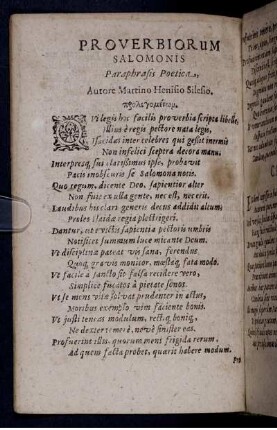 PROVERBIORUM
SALOMONIS
Paraphrasis Poetica,
Autore Martino Henisio Silesio.
προλεγομενον.
QVi legis hoc facili proverbia scripta libello,
Illius è regis pectore nata legis,
Isacidas inter celebres qui gessit inermis
Non infelici sceptra decora manu.
Interpresq; sui clarissimus ipse, probavit
Pacis in obscuris se Salomona notis.
Quo regum, dicente Deo, sapientior alter
Non fuit ex ulla gente, nec est, nec erit.
Laudibus his clari generis decus addidit altum
Proles Isaidæ regia plectrigeri.
Dantur, ut evictis sapientia pectoris umbris
Notificet summum luce micante Deum.
Ut disciplina pateat vis sana, ferendæ
Quoq; gravis monitor, mulctaq; fata modo.
Ut facile à sancto sit falsa recidere vero,
Simplice fucatos à pietate sonos.
Ut se mens vitæ solvat prudenter in actus,
Moribus exemplo vim faciente bonis.
Ut justi teneas modulum, rectiq; boniq;,
Ne dexter temerè, nevè sinister eas.
Profuerint illis, quorum mens frigida rerum,
Ad quem facta probet, quærit habere modum.